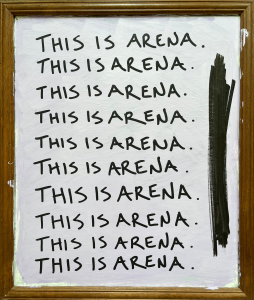 THIS IS ARENA.
THIS IS ARENA.
THIS IS ARENA.
THIS IS ARENA.
THIS IS ARENA.
THIS IS ARENA.
THIS IS ARENA.
THIS IS ARENA.
THIS IS ARENA.
THIS IS ARENA.